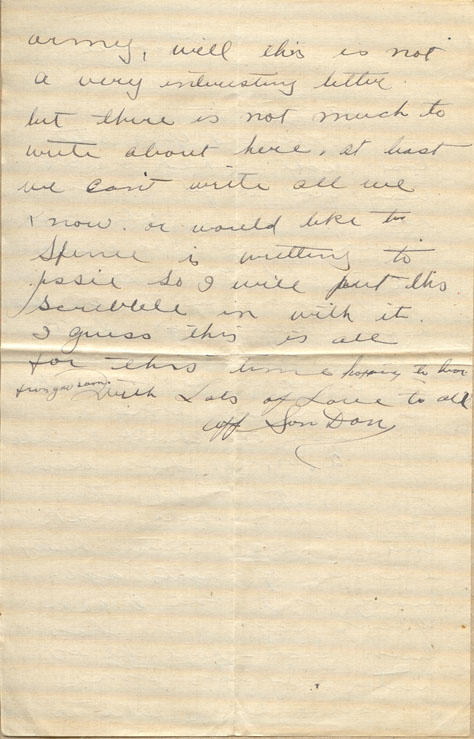 army, well this is not
a very interesting letter.
but there is not much to
write about here, at least
we can't write all we
know. or would like to
Spence is writting to
essie so I will put this
scribble in with it.
I guess this is all
for this time hoping to hear
from you soon.
With Lots of Love to all
aff Son Don